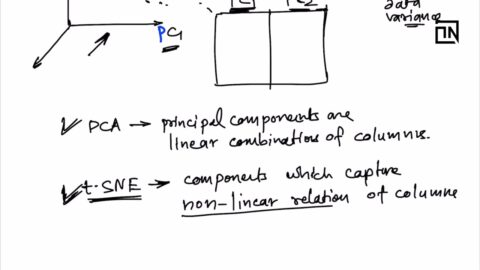 PC1
data
variance
PCA → principal components are
linear combination of columns.
t-SNE → components which capture
non-linear relation of columns